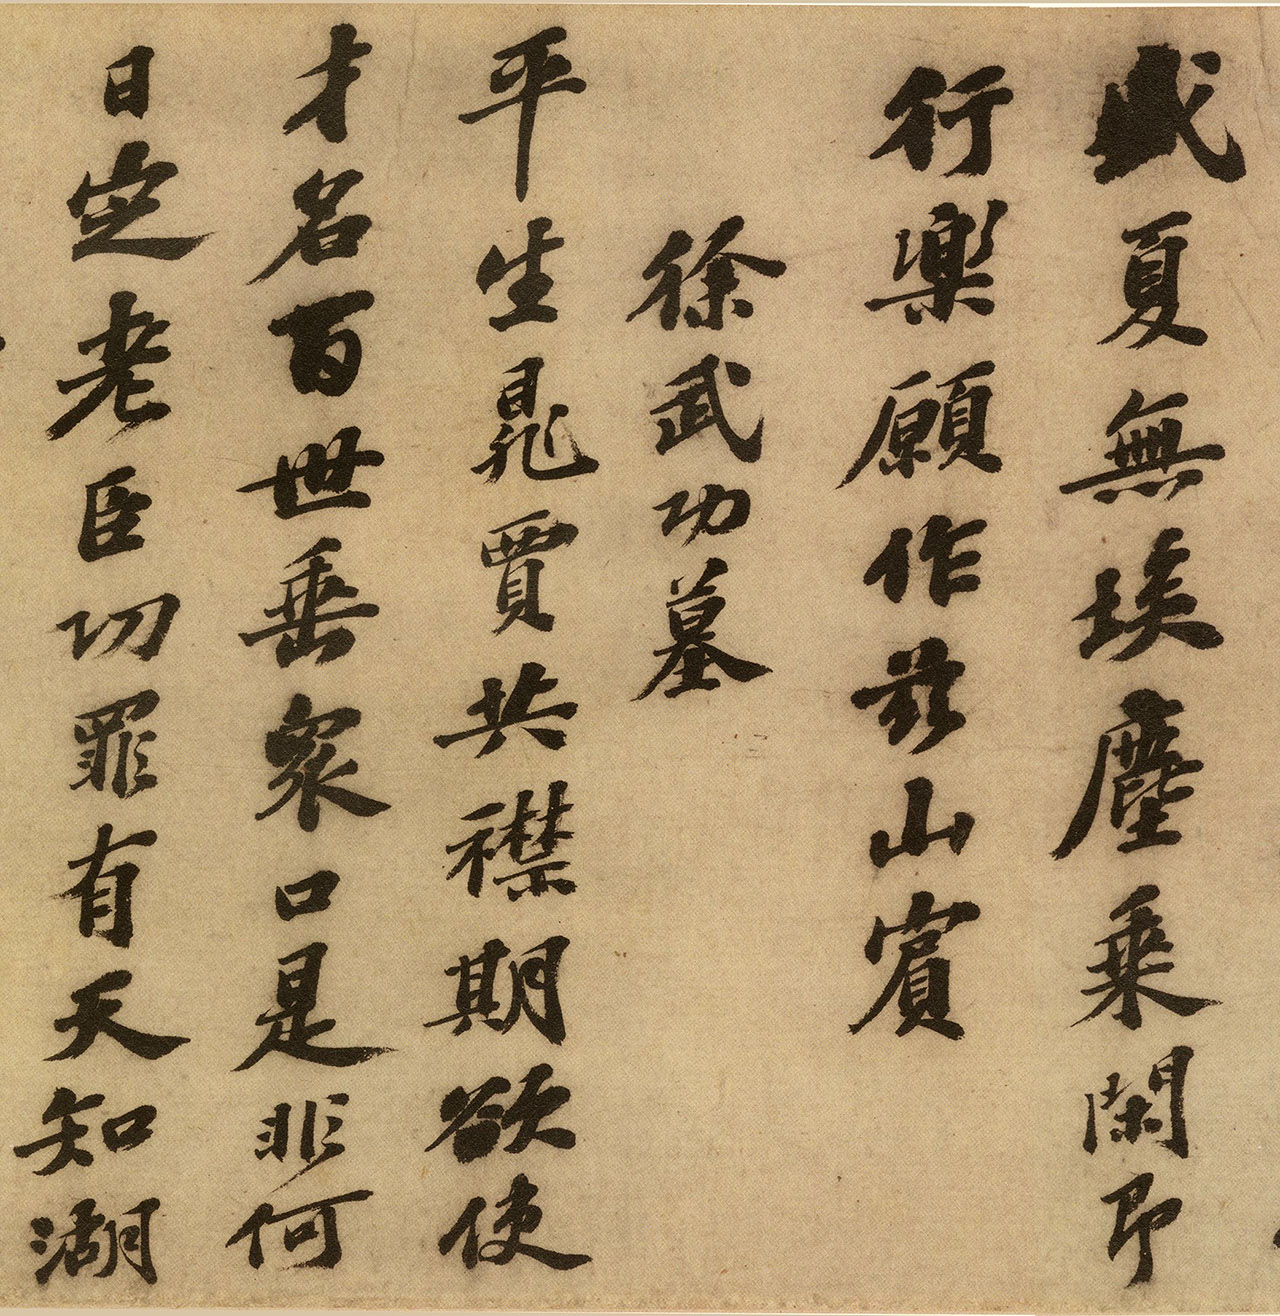 盛夏無埃塵乗閑即
行樂願作茲山賓
徐武功墓
平生晁賈共襟期欲使
才名百世垂衆口是非何
日定老臣功罪有天知湖